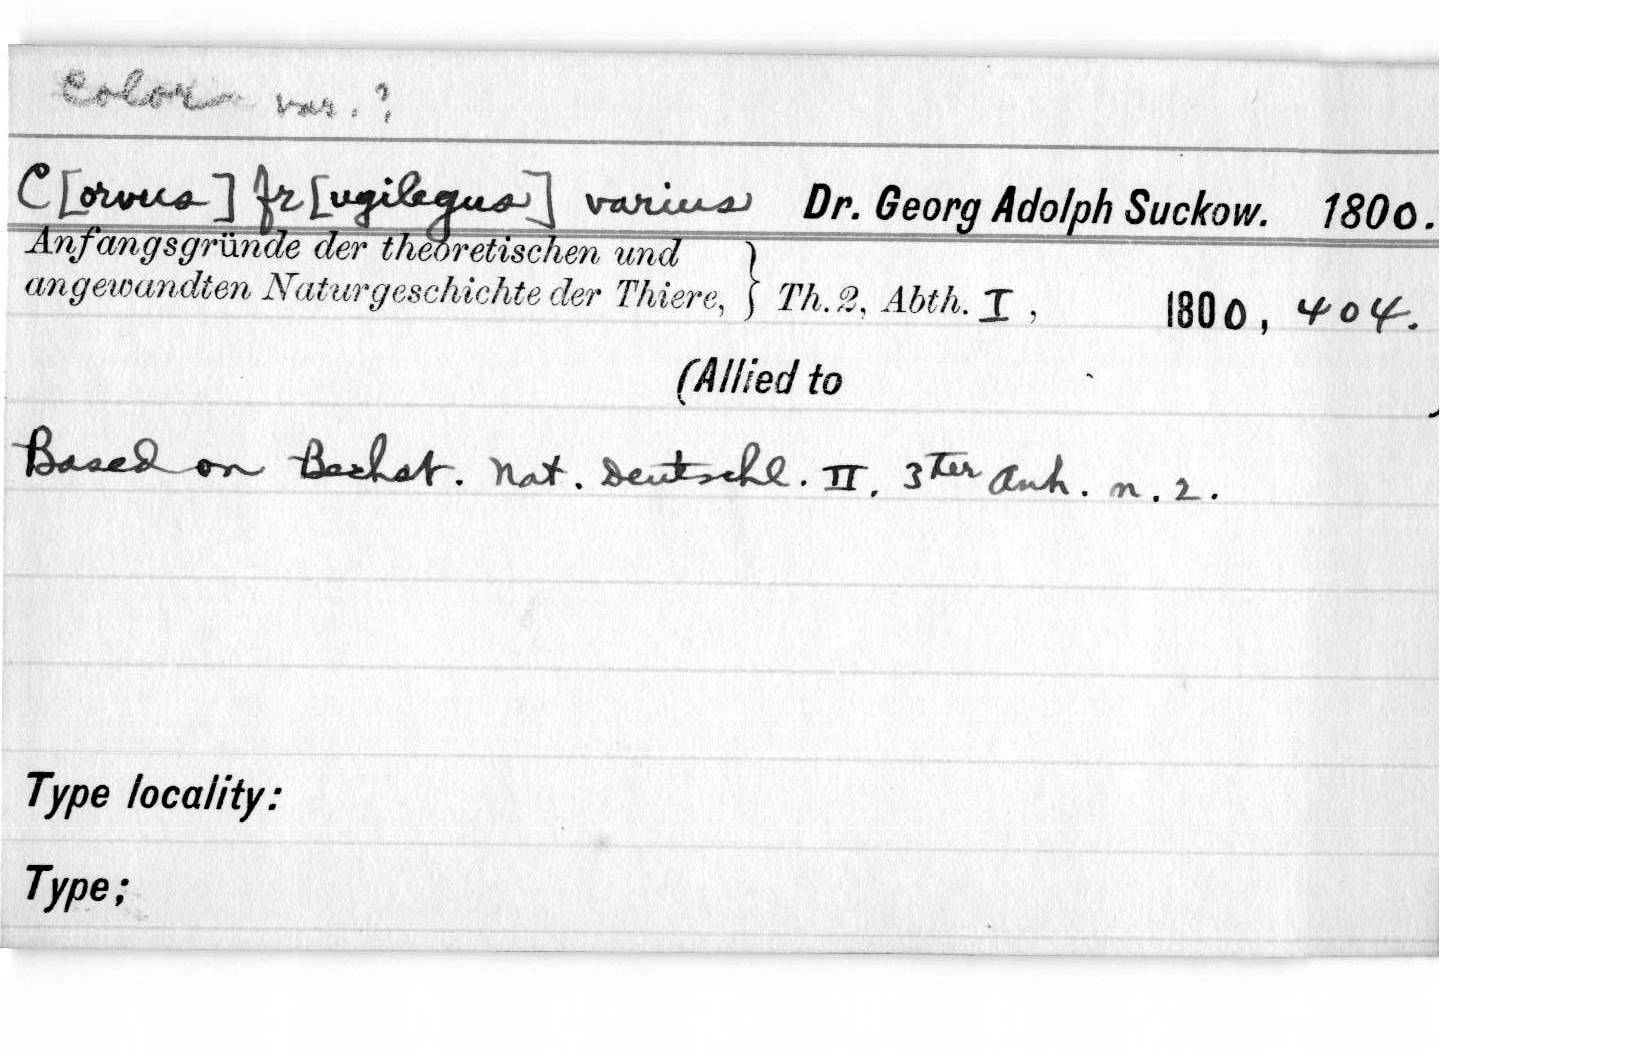 Color var. ?
C[orvus] fr[ugilegus] varius Dr. Georg Adolph Suckow. 1800.
Anfangsgründe der theoretischen und
angewandten Naturgeschichte der Thiere, } Th. 2, Abth. I, 1800, 404.
(Allied to )
Based on Bechst. Nat. Deutschl. II. 3ter Anh. n. 2.
Type locality:
Type;